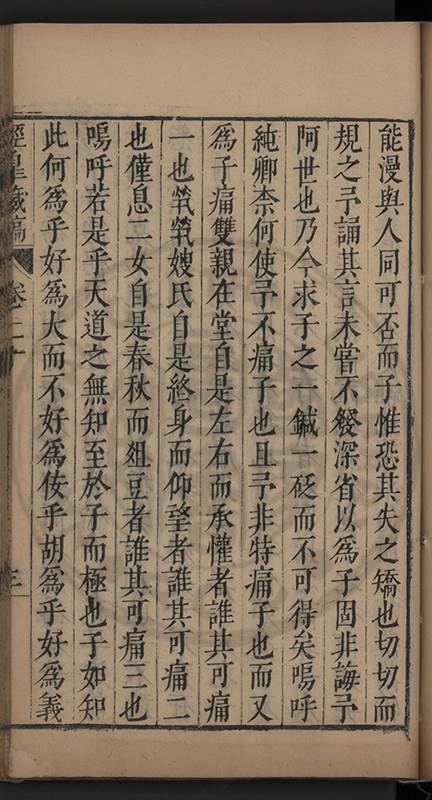 能漫與人同可否而子惟恐其失之矯也切切而
規之予誦其言未嘗不發深省以為子固非誨予
阿世也乃今求子之一鍼一砭而不可得矣嗚呼
純卿柰何使予不痛子也且予非特痛子也而又
為子痛雙親在堂自是左右而承懽者誰其可痛
一也煢煢嫂氏自是終身而仰望者誰其可痛二
也僅息二女自是春秋而俎豆者誰其可痛三也
嗚呼若是乎天道之無知至於子而極也子如知
此何為乎好為大而不好為佞乎胡為乎好為義
涇臯藏稿
卷二十
三